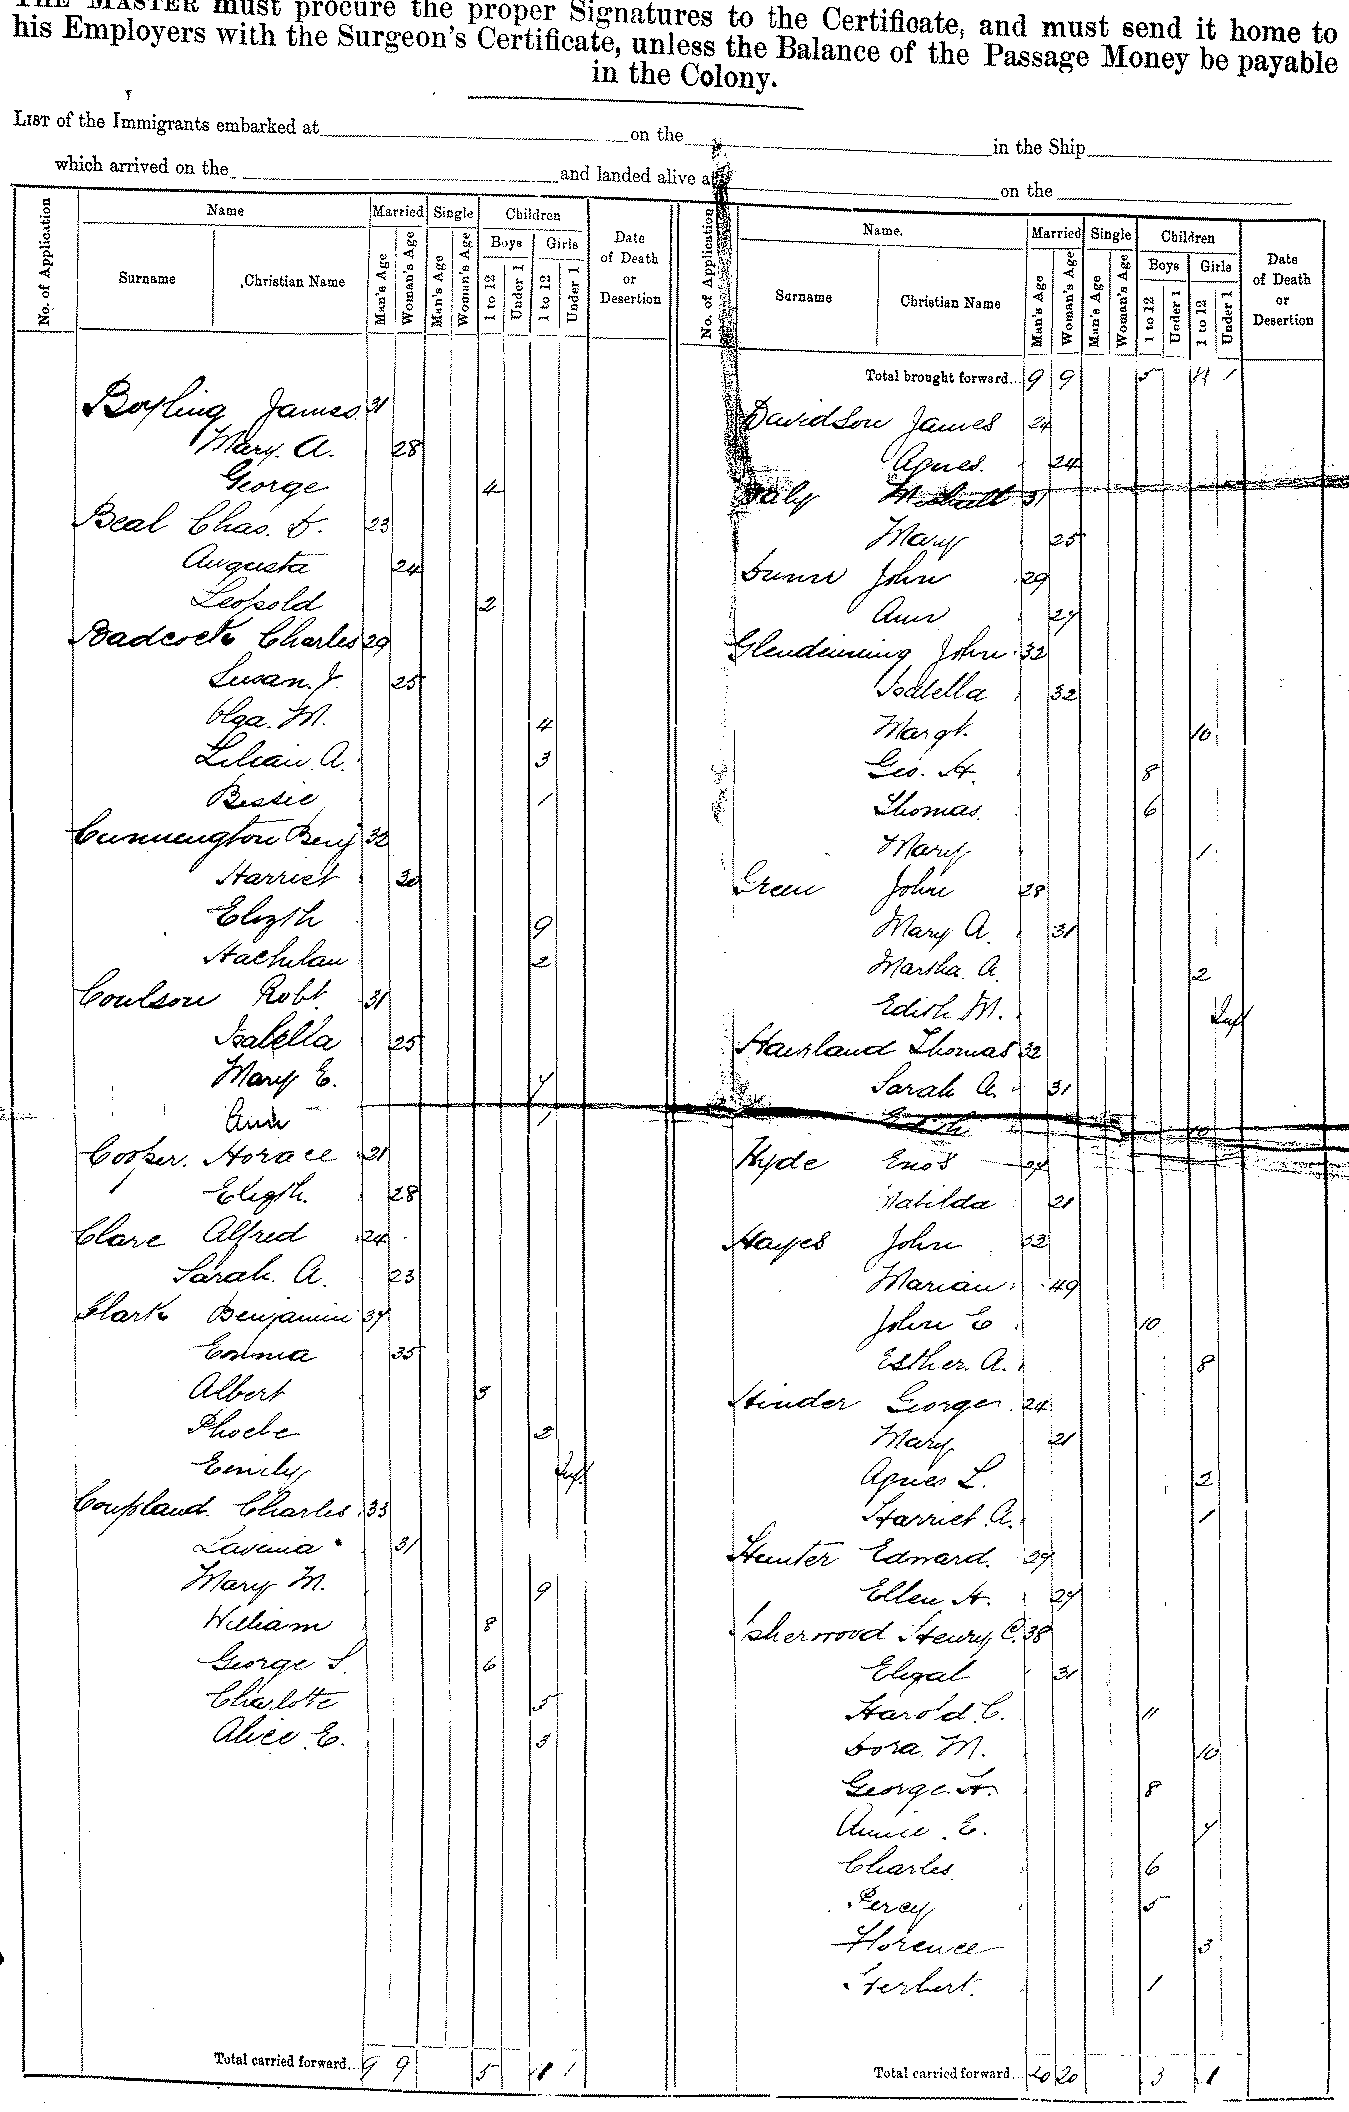 THE MASTER must procure the proper Signatures to the Certificate, and must send it home to
his Employers with the Surgeon's Certificate, unless the Balance of the Passage Money be payable
in the Colony.
LIST of the Immigrants embarked at on the in the Ship
which arrived on the and landed alive at on the
No. of Application
Name
Married
Single
Children
Surname
Christian Name
Man's Age
Woman's Age
Man's Age
Woman's Age
Boys
Girls
1 to 12
Under 1
1 to 12
Under 1
Date
of Death
or
Desertion
Boyling James 31
Mary. A. 28
George 4
Beal Chas. D. 23
Augusta 24
Leopold 2
Badcock Charles 29
Susan. J. 25
Olga. M. 4
Lilian A. 3
Bessie 1
Cunnington Benj 32
Harriet 30
Elizth 9
2
Coulson Robt. 31
Isabella 25
Mary E. 7
Ann 1
Cooper. Horace 21
Elizth. 28
Clare Alfred 24
Sarah. A. 23
Clark Benjamin 37
Emma 35
Albert 3
Phoebe 2
Emily Inf
Coupland. Charles 33
Lavinia 31
Mary M. 9
William 8
George S. 6
Charlotte 5
Alice E. 3
Total carried forward... 9 9 5 1
No. of Application
Name.
Married
Single
Children
Surname
Christian Name
Man's Age
Woman's Age
Man's Age
Woman's Age
Boys
Girls
1 to 12
Under 1
1 to 12
Under 1
Date
of Death
or
Desertion
Total brought forward... 9 9 5 11 1
Davidson James 24
Agnes. 24
Daly 31
Mary 25
Dunn John 29
Ann 27
Glendinning John 32
Isabella 32
Margt. 10
Geo. H. 8
Thomas. 6
Mary 1
Green John 28
Mary A. 31
Martha. A. 2
Edith M. Inf
Thomas 32
Sarah A. 31
Edith 10
Hyde Enos 27
Matilda 21
Hayes John 52
Marian 49
John E 10
Esther. A. 8
Hinder George 24
Mary 21
Agnes L. 2
Harriet. A. 1
Hunter Edward. 29
Ellen H. 27
Isherwood Henry C. 38
31
Harold C. 11
Dora. M. 10
George. H. 8
Annie. E. 7
Charles 6
Percy 5
Florence 3
Herbert. 1
Total carried forward... 20 20 3 1